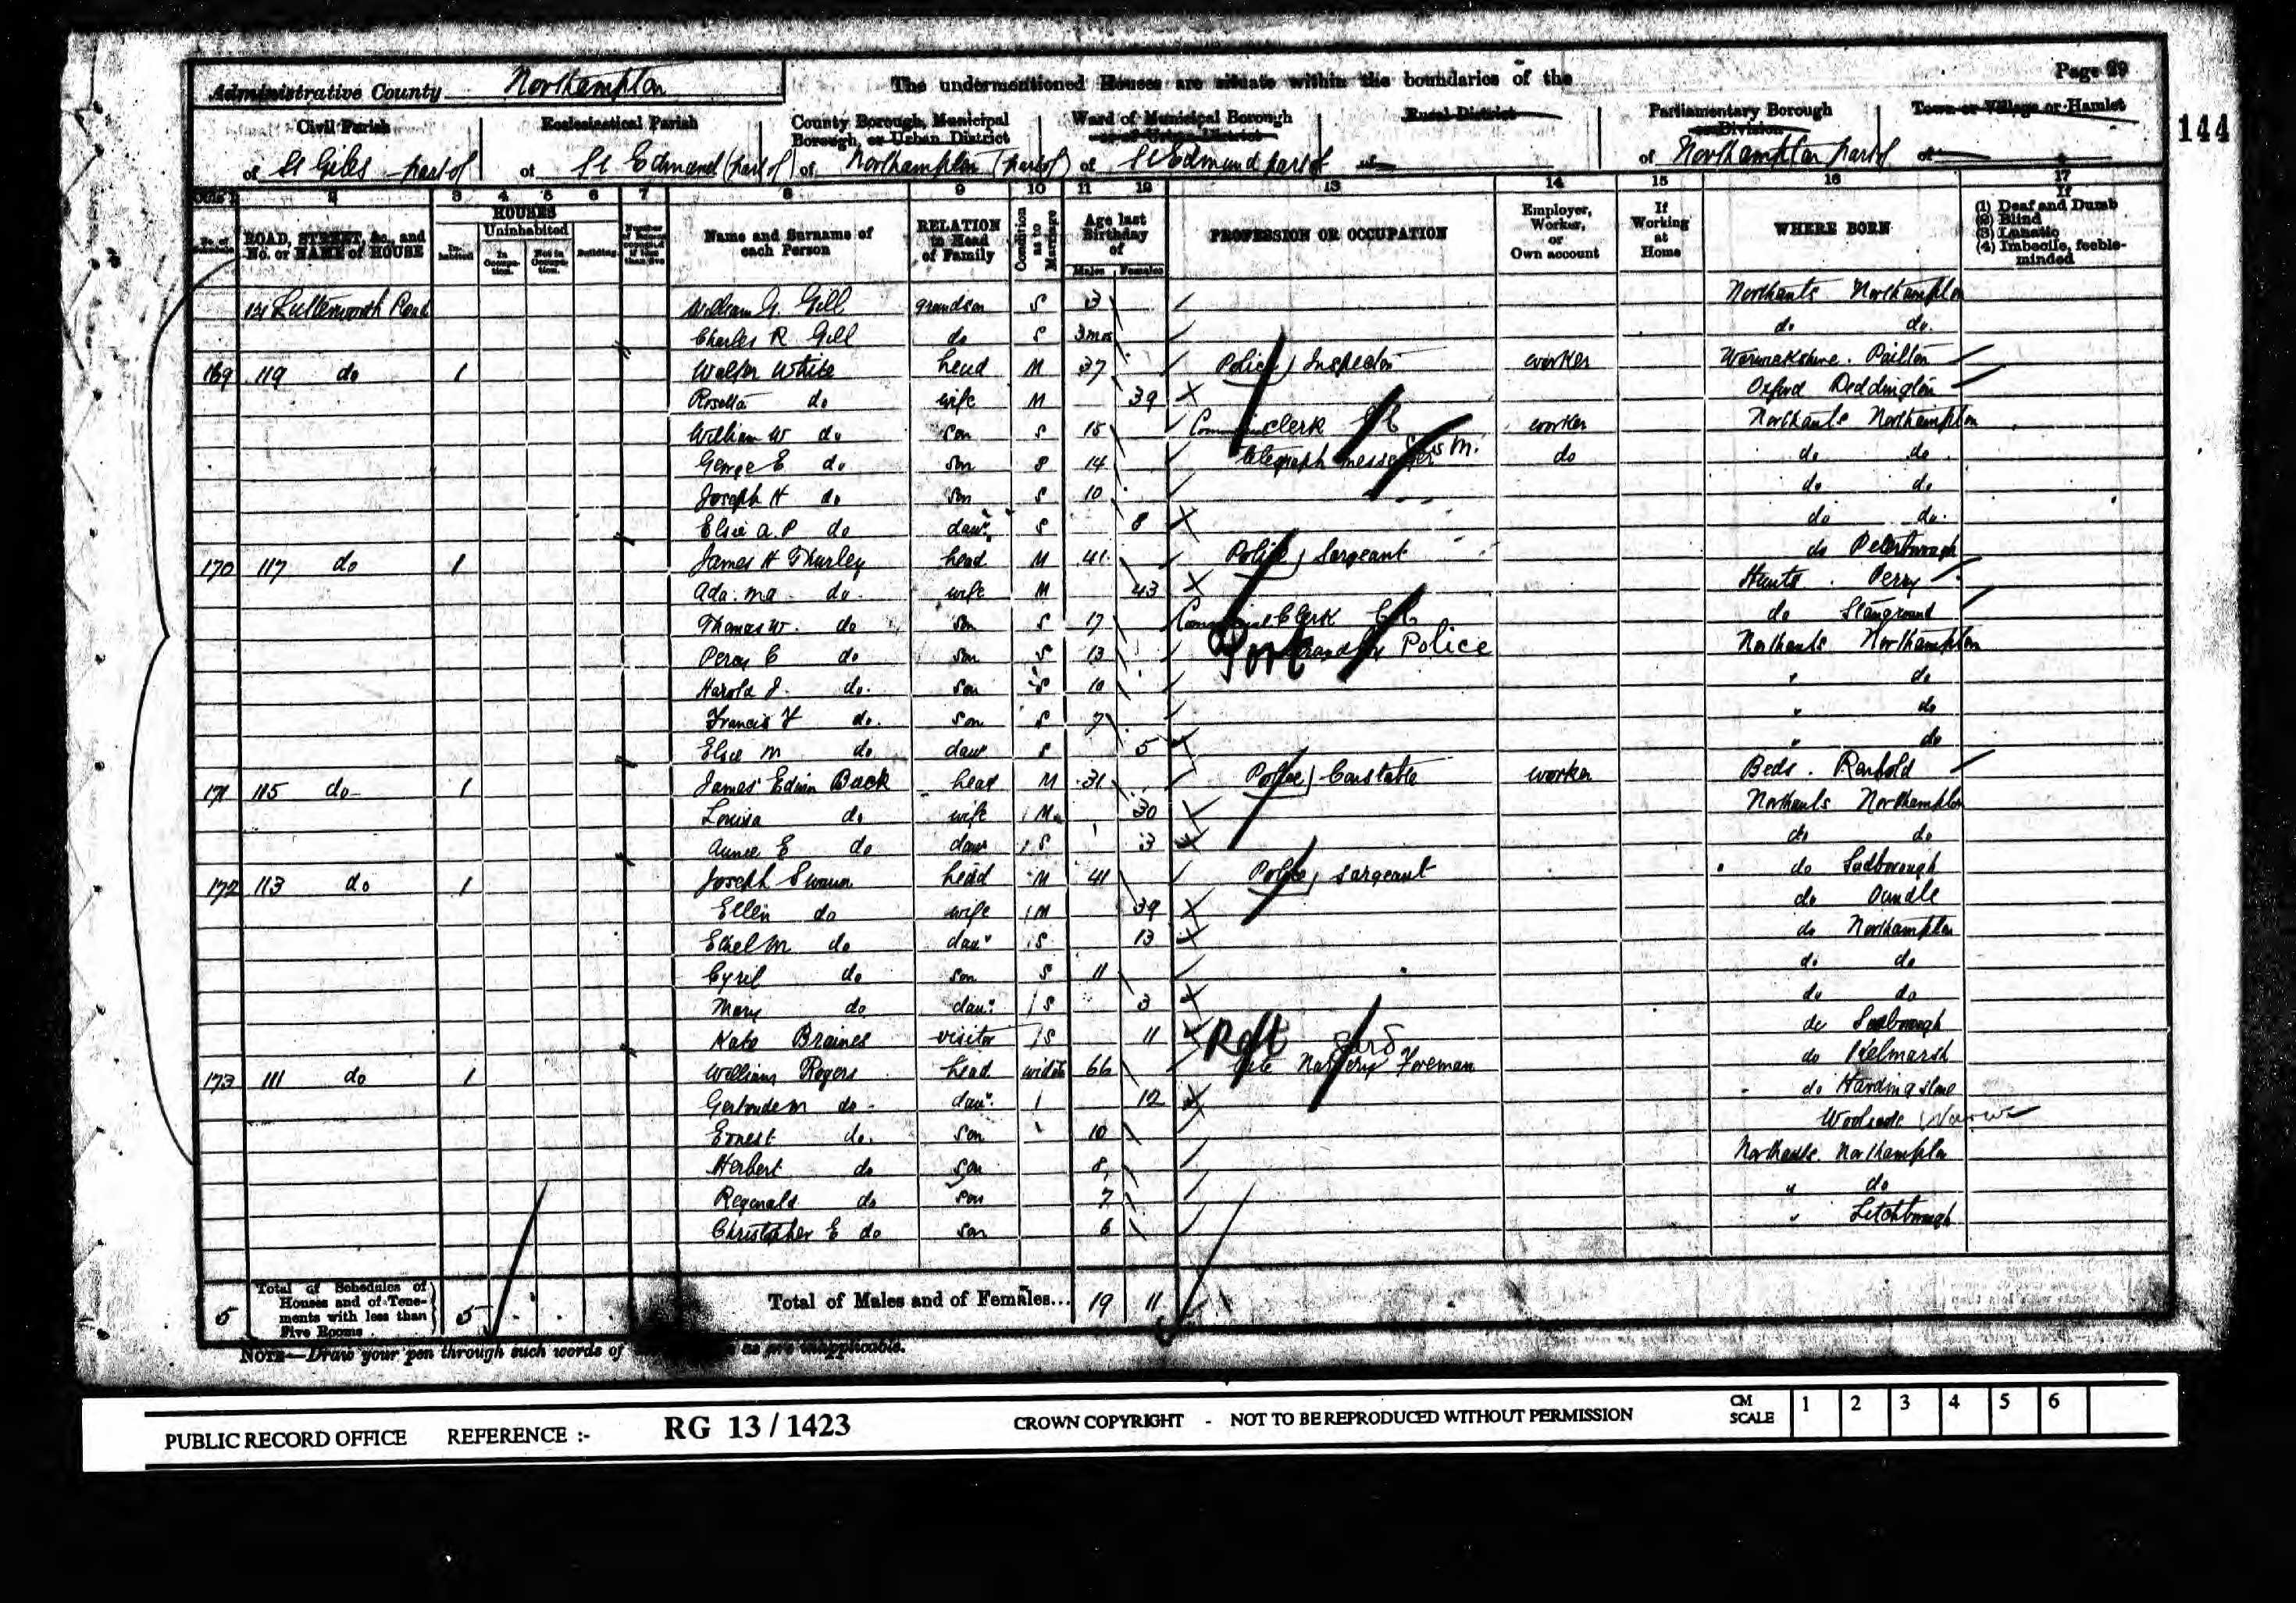 Page 29
Administrative County Northampton The undermentioned Houses are situate within the boundaries of the
144
Civil Parish Ecclesiastical Parish County Borough, Municipal Borough, or Urban District Ward of Municipal Borough or of Urban District Rural District Parliamentary Borough or Division Town or Village or Hamlet
of St Giles part of of St Edmund (part of) of Northampton (part of) of St Edmund part of of Northampton part of of
1 2 3 4 5 6 7 8 9 10 11 12 13 14 15 16 17
No. of Schedule ROAD, STREET, &c., and No. or NAME of HOUSE HOUSES Inhabited Uninhabited In Occupation. Not in Occupation. Building. Number of Rooms occupied if less than five Name and Surname of each Person RELATION to Head of Family Condition as to Marriage Age last Birthday of Males Females PROFESSION OR OCCUPATION Employer, Worker, or Own account If Working at Home WHERE BORN If (1) Deaf and Dumb (2) Blind (3) Lunatic (4) Imbecile, feeble-minded
121 Lutterworth Road William G. Gill grandson S 3 Northants Northampton
Charles R Gill do S 3mos do do
169 119 do 1 Walter White head M 37 Police Inspector worker Warwickshire. Pailton
Rosetta do wife M 39 Oxford Deddington
William W do son S 15 Commercial Clerk worker Northants Northampton
George E do son S 14 telegraph messenger M. do do do
Joseph H do son S 10 do do
Elsie A. P do daur S 8 do do
170 117 do 1 James H Thurley head M 41 Police Sargeant do Peterborough
Ada. Ma do wife M 43 Hunts. Perry
Thomas W. do son S 17 Commercial Clerk do Stanground
Percy E do son S 13 Port Police Northants Northampton
Harold J. do son S 10 " do
Francis Y do son S 7 " do
Elsie M do daur S 5 " do
171 115 do 1 James Edwin Back head M 31 Police Constable worker Beds. Renhold
Louisa do wife M 30 Northants Northampton
Annie E do daur S 3 do do
172 113 do 1 Joseph Swann head M 41 Police Sargeant do Sudborough
Ellen do wife M 39 do Oundle
Ethel M do daur S 13 do Northampton
Cyril do son S 11 do do
Mary do daur S 3 do do
Kate Braines visitor S 11 do Sudborough
173 111 do 1 William Rogers head widr 66 Retd Foreman do Kelmarsh
Gertrude M do daur 12 do Hardingstone
Ernest do son 10
Herbert do son 8 Northants Northampton
Reginald do son 7 " do
Christopher E do son 6 " Litchborough
5 Total of Schedules of Houses and of Tenements with less than Five Rooms 5 Total of Males and of Females... 19 11
NOTE—Draw your pen through such words of as are inapplicable.
PUBLIC RECORD OFFICE REFERENCE :- RG 13 / 1423 CROWN COPYRIGHT - NOT TO BE REPRODUCED WITHOUT PERMISSION CM SCALE 1 2 3 4 5 6